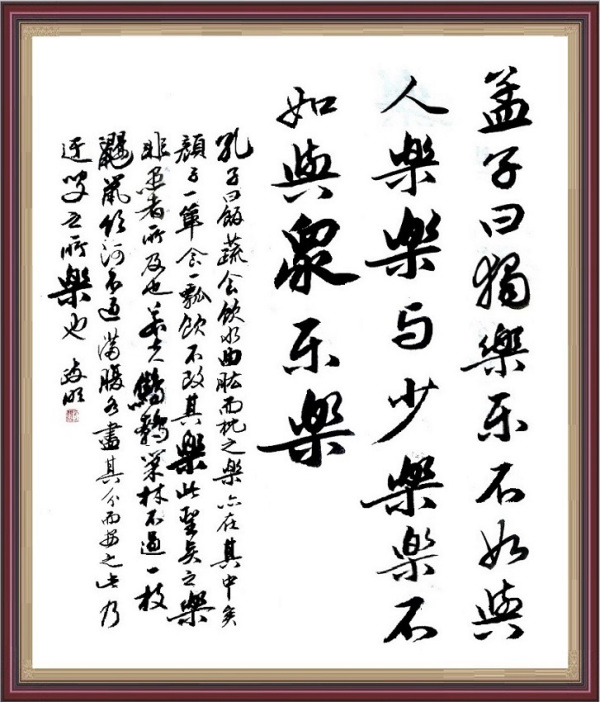 孟子曰獨樂乐不如與
人樂樂与少樂樂不
如與眾乐樂
孔子曰飯蔬食飲水曲肱而枕之樂亦在其中矣
顏子一簞食一瓢飲不改其樂此聖賢之樂
非愚者所及也若夫鷦鷯巢林不過一枝
鼴鼠飲河不過滿腹各盡其分而安之此乃
迂叟之所樂也